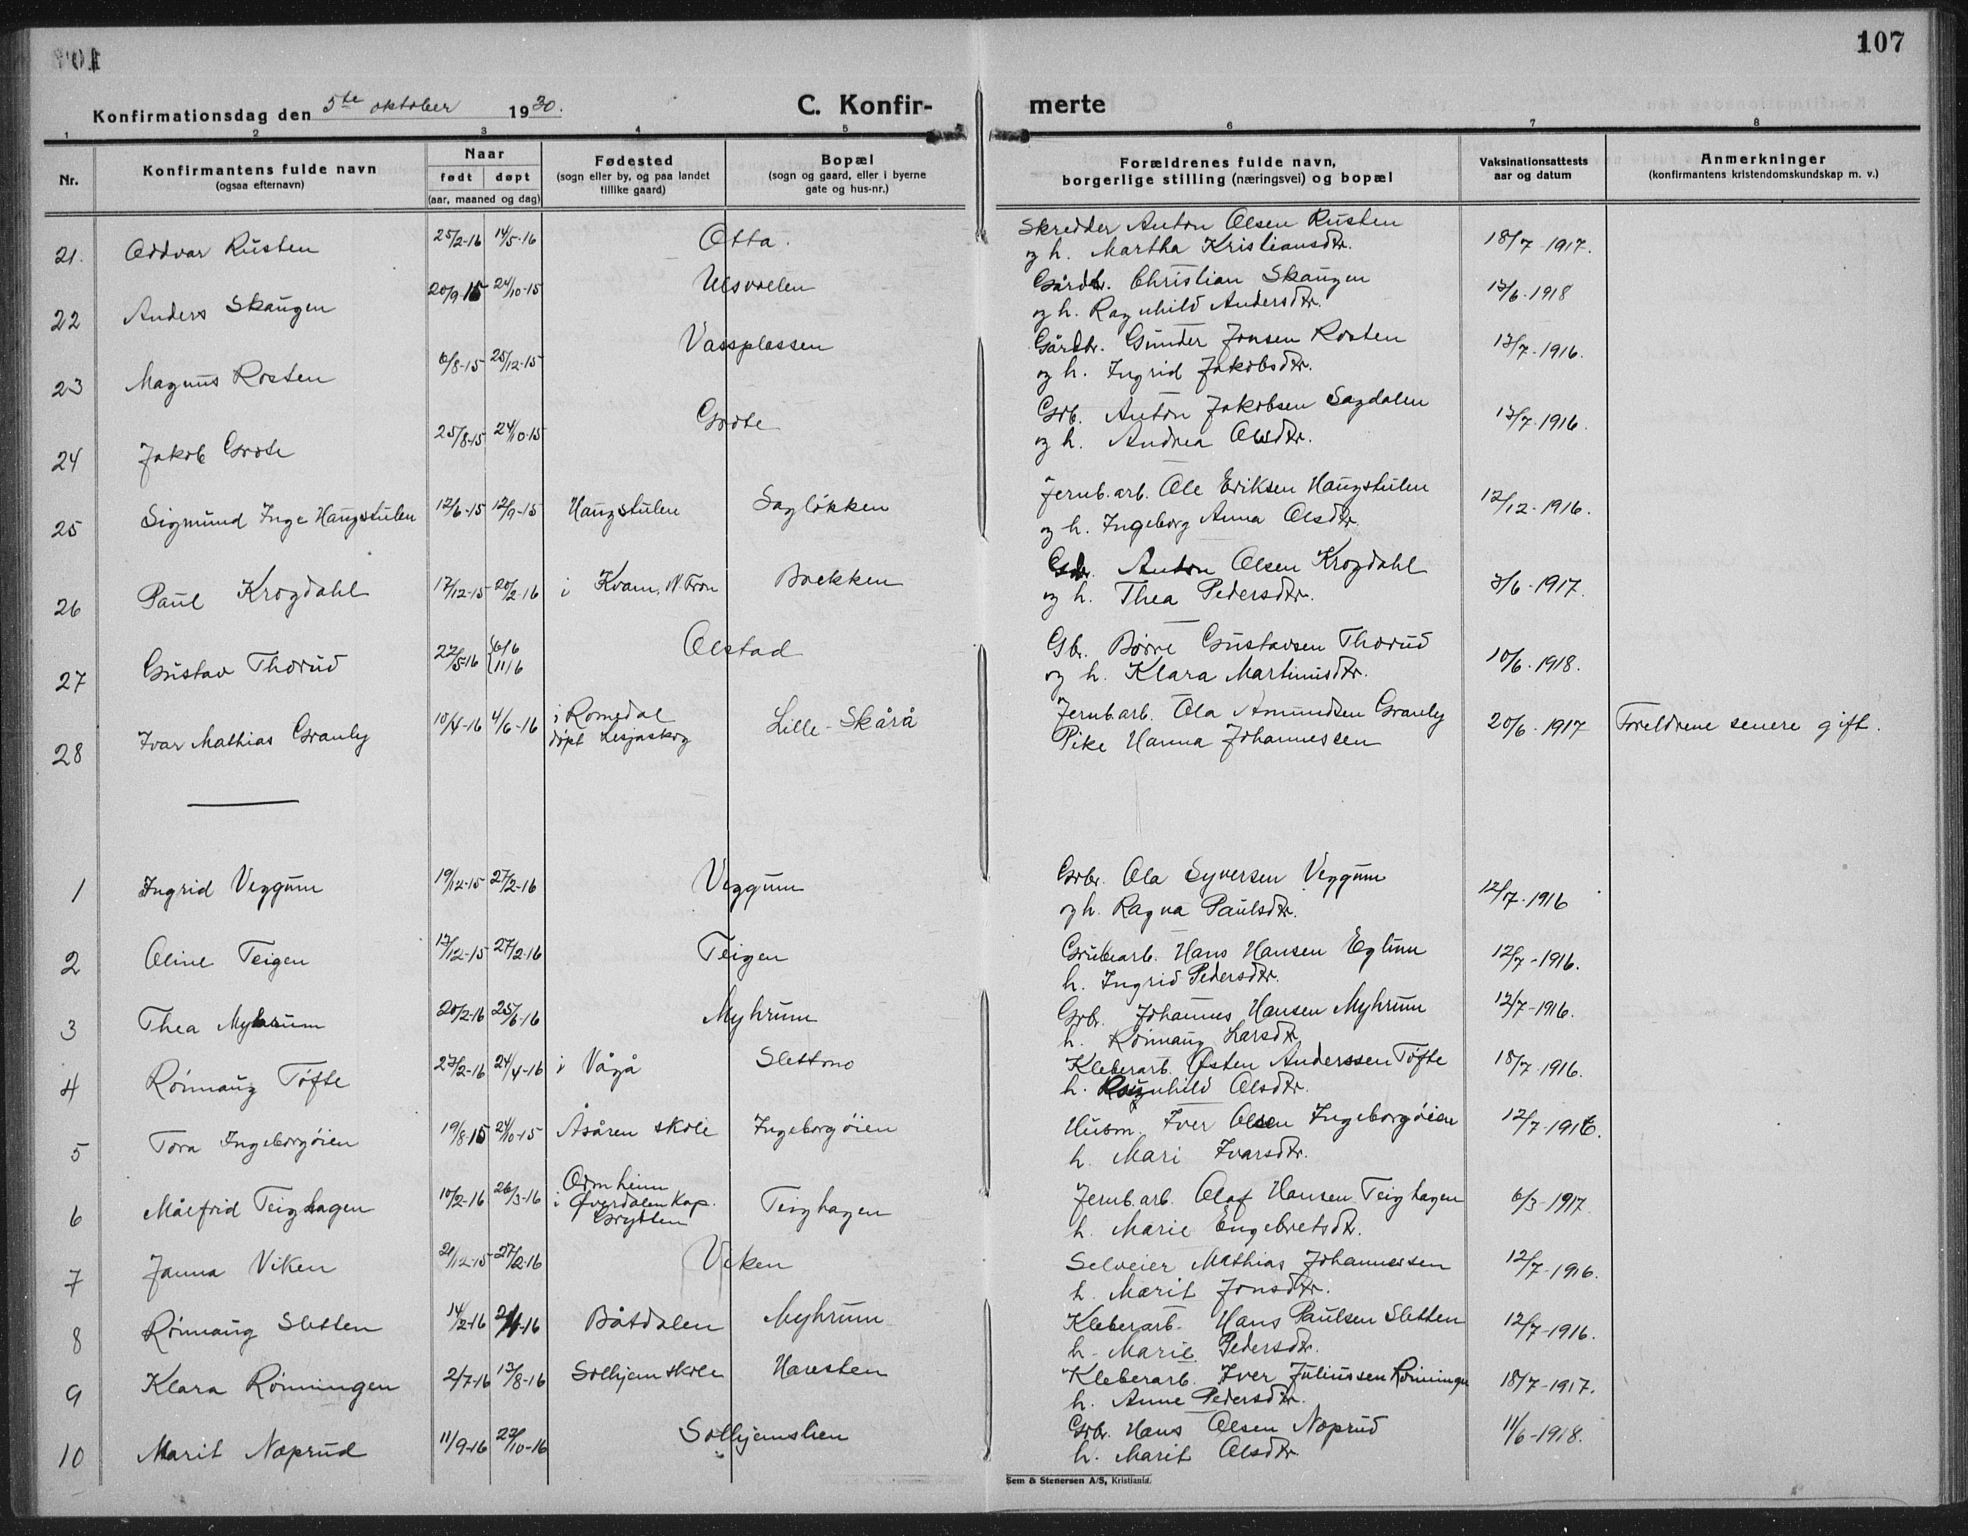 107
Konfirmationsdag den 5te oktober 1930.
C. Konfir-
merte
1 2 3 4 5 6 7 8
Nr.
Konfirmantens fulde navn
(ogsaa efternavn)
Naar
født døpt
(aar, maaned og dag)
Fødested
(sogn eller by, og paa landet
tillike gaard)
Bopæl
(sogn og gaard, eller i byerne
gate og hus-nr.)
Forældrenes fulde navn,
borgerlige stilling (næringsvei) og bopæl
Vaksinationsattests
aar og datum
Anmerkninger
(konfirmantens kristendomskundskap m. v.)
21. Oddvar Rusten 25/2-16 14/5-16 Otta. Skredder Anton Olsen Rusten
og h. Martha Kristiansdtr. 18/7-1917.
22 Anders Skaugen 20/9-15 24/10-15 Ulsvolen Gårdbr. Christian Skaugen
og h. Ragnhild Andersdtr. 13/6-1918
23 Magnus Rosten 6/8-15 25/12-15 Vassplassen Gårdbr. Gunder Jonsen Rosten
og h. Ingrid Jakobsdtr. 13/7-1916.
24 Jakob Grote 25/8-15 24/10-15 Grote Gbr. Anton Jakobsen Sagdalen
og h. Andrea Olsdtr. 13/7-1916.
25 Sigmund Inge Haugstulen 12/6-15 12/9-15 Haugstulen Sagløkken Jernb.arb. Ole Eriksen Haugstulen
og h. Ingeborg Anna Olsdtr. 12/12-1916.
26 Paul Krogdahl 17/12-15 20/2-16 i Kvam, N. Fron Bækken Gbr. Anton Olsen Krogdahl
og h. Thea Pedersdtr. 3/6-1917.
27 Gustav Thorud 22/5-16 6/6 11/6 Olstad Gbr. Børre Gustavsen Thorud
og h. Klara Martinusdtr. 10/6-1918.
28 Ivar Mathias Granly 10/4-16 4/6-16 i Romsdal
døpt Lesjaskog Lille-Skårå Jernb.arb. Ola Amundsen Granly
Pike Hanna Johannessen 20/6-1917 Foreldrene senere gift.
1 Ingrid Veggum 19/12-15 27/2-16 Veggum Gbr. Ola Syversen Veggum
og h. Ragna Paulsdtr. 12/7-1916
2 Oline Teigen 13/12-15 27/2-16 Teigen Grubearb. Hans Hansen Eglum
h. Ingrid Pedersdtr. 12/7-1916.
3 Thea Myhrum 20/2-16 25/6-16 Myhrum Gbr. Johannes Hansen Myhrum
h. Rønnaug Larsdtr. 12/7-1916.
4 Rønnaug Tøfte 23/2-16 24/4-16 i Vågå Slettmo Kleberarb. Østen Anderssen Tøfte
h. Ragnhild Olsdtr. 18/7-1916.
5 Tora Ingeborgøien 19/8-15 24/10-15 Åsåren skole Ingeborgøien Husm. Iver Olsen Ingeborgøien
h. Mari Ivarsdtr. 12/7-1916.
6 Målfrid Teighagen 10/2-16 26/3-16 Ormheim
i Øverdalen Kap.
Grytten Teighagen Jernb.arb. Olaf Hansen Teighagen
h. Marie Engebretsdtr. 6/3-1917
7 Janna Viken 21/12-15 27/2-16 Viken Selveier Mathias Johannessen
h. Marit Jonsdtr. 12/7-1916.
8 Rønnaug Sletten 14/2-16 Båtdalen Myhrum Kleberarb. Hans Paulsen Sletten
h. Marie Pedersdtr. 12/7-1916.
9 Klara Rønningen 2/7-16 13/8-16 Solhjem skole Haresten Kleberarb. Iver Juliussen Rønningen
h. Anne Pedersdtr. 18/7-1917.
10 Marit Noprud 11/9-16 22/10-16 Solhjemslien Gbr. Hans Olsen Noprud
h. Marit Olsdtr. 11/6-1918.
Sem & Stenersen A/S, Kristiania.